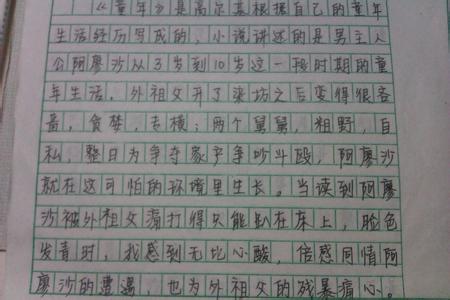 《童年》是高尔基根据自己的童年
生活经历写成的，小说讲述的是男主人
公阿廖沙从3岁到10岁这一段时期的童
年生活。外祖父开了染坊之后变得很吝
啬，贪婪，专横；两个舅舅，粗野，自
私，整日为争夺家产争吵斗殴，阿廖沙
就在这可怕的环境里生长。当读到阿廖
沙被外祖父痛打得只能趴在床上，脸色
发青时，我感到无比心酸，倍感同情阿
廖沙的遭遇，也为外祖父的残暴痛心。